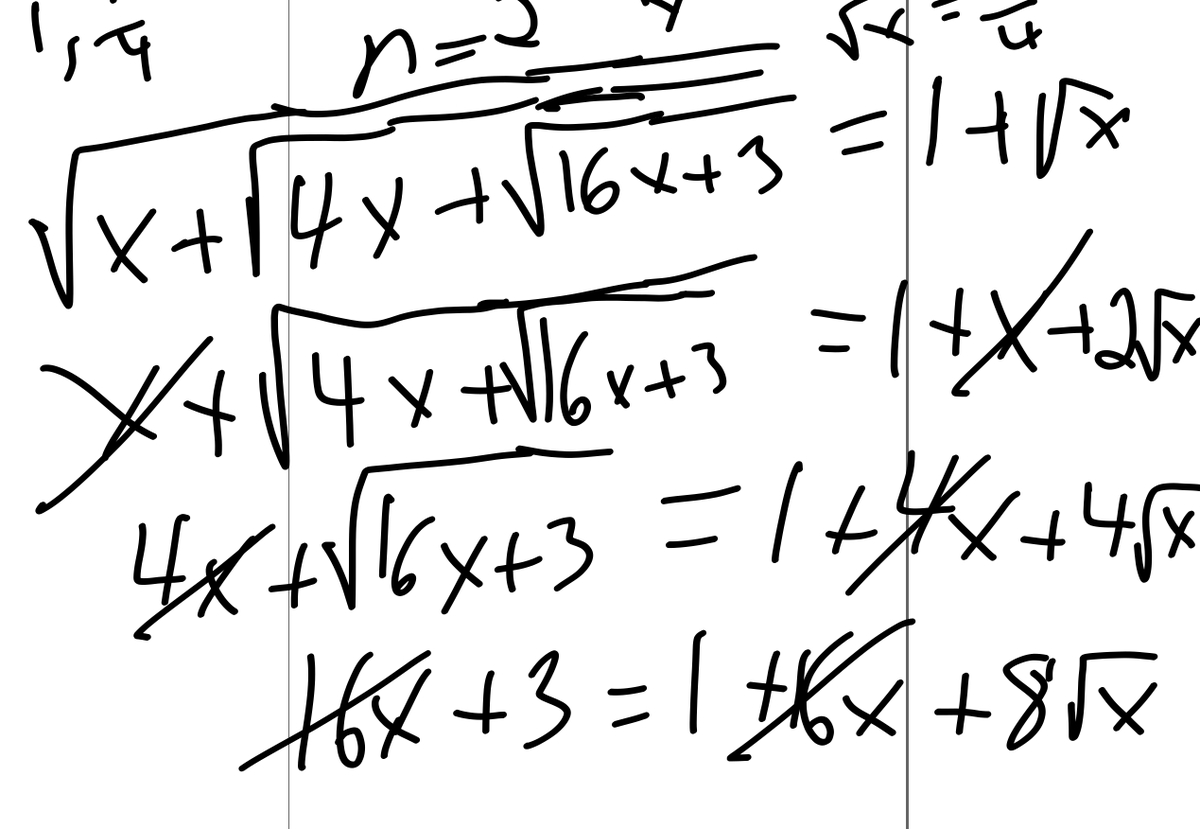 √(x+√(4x+√(16x+3))) = 1+√x
x+√(4x+√(16x+3)) = 1+x+2√x
4x+√(16x+3) = 1+4x+4√x
16x+3 = 1+16x+8√x